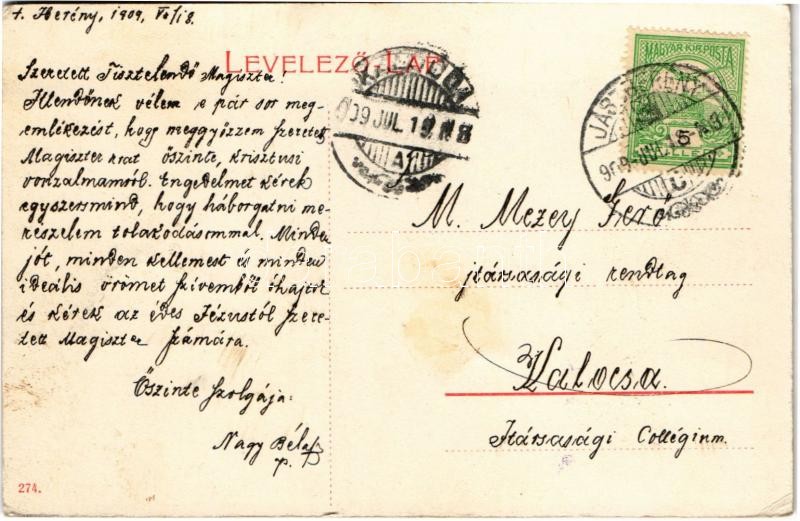 Herény, 1909, VII/18.
LEVELEZŐ LAP
Szeretett Tisztelendő Magiszter!
Illendőnek vélem e pár sor meg-
emlékezést, hogy meggyőzzem szeretett
Magiszter urat őszinte, krisztusi
vonzalmamról. Engedelmet kérek
egyszersmind, hogy háborgatni me-
részelem tolakodásommal. Minden
jót, minden kellemest és minden
ideális örömet szívemből óhajtok
és kérek az édes Jézustól szere-
tett Magiszter számára.
Őszinte szolgája:
Nagy Béla
p.
274.
MAGYAR KIR. POSTA
909 JUL.
09 JUL. 19.
M. Mezey Gerő
jézustársasági rendtag
Kalocsa.
Jtársasági Collégium.